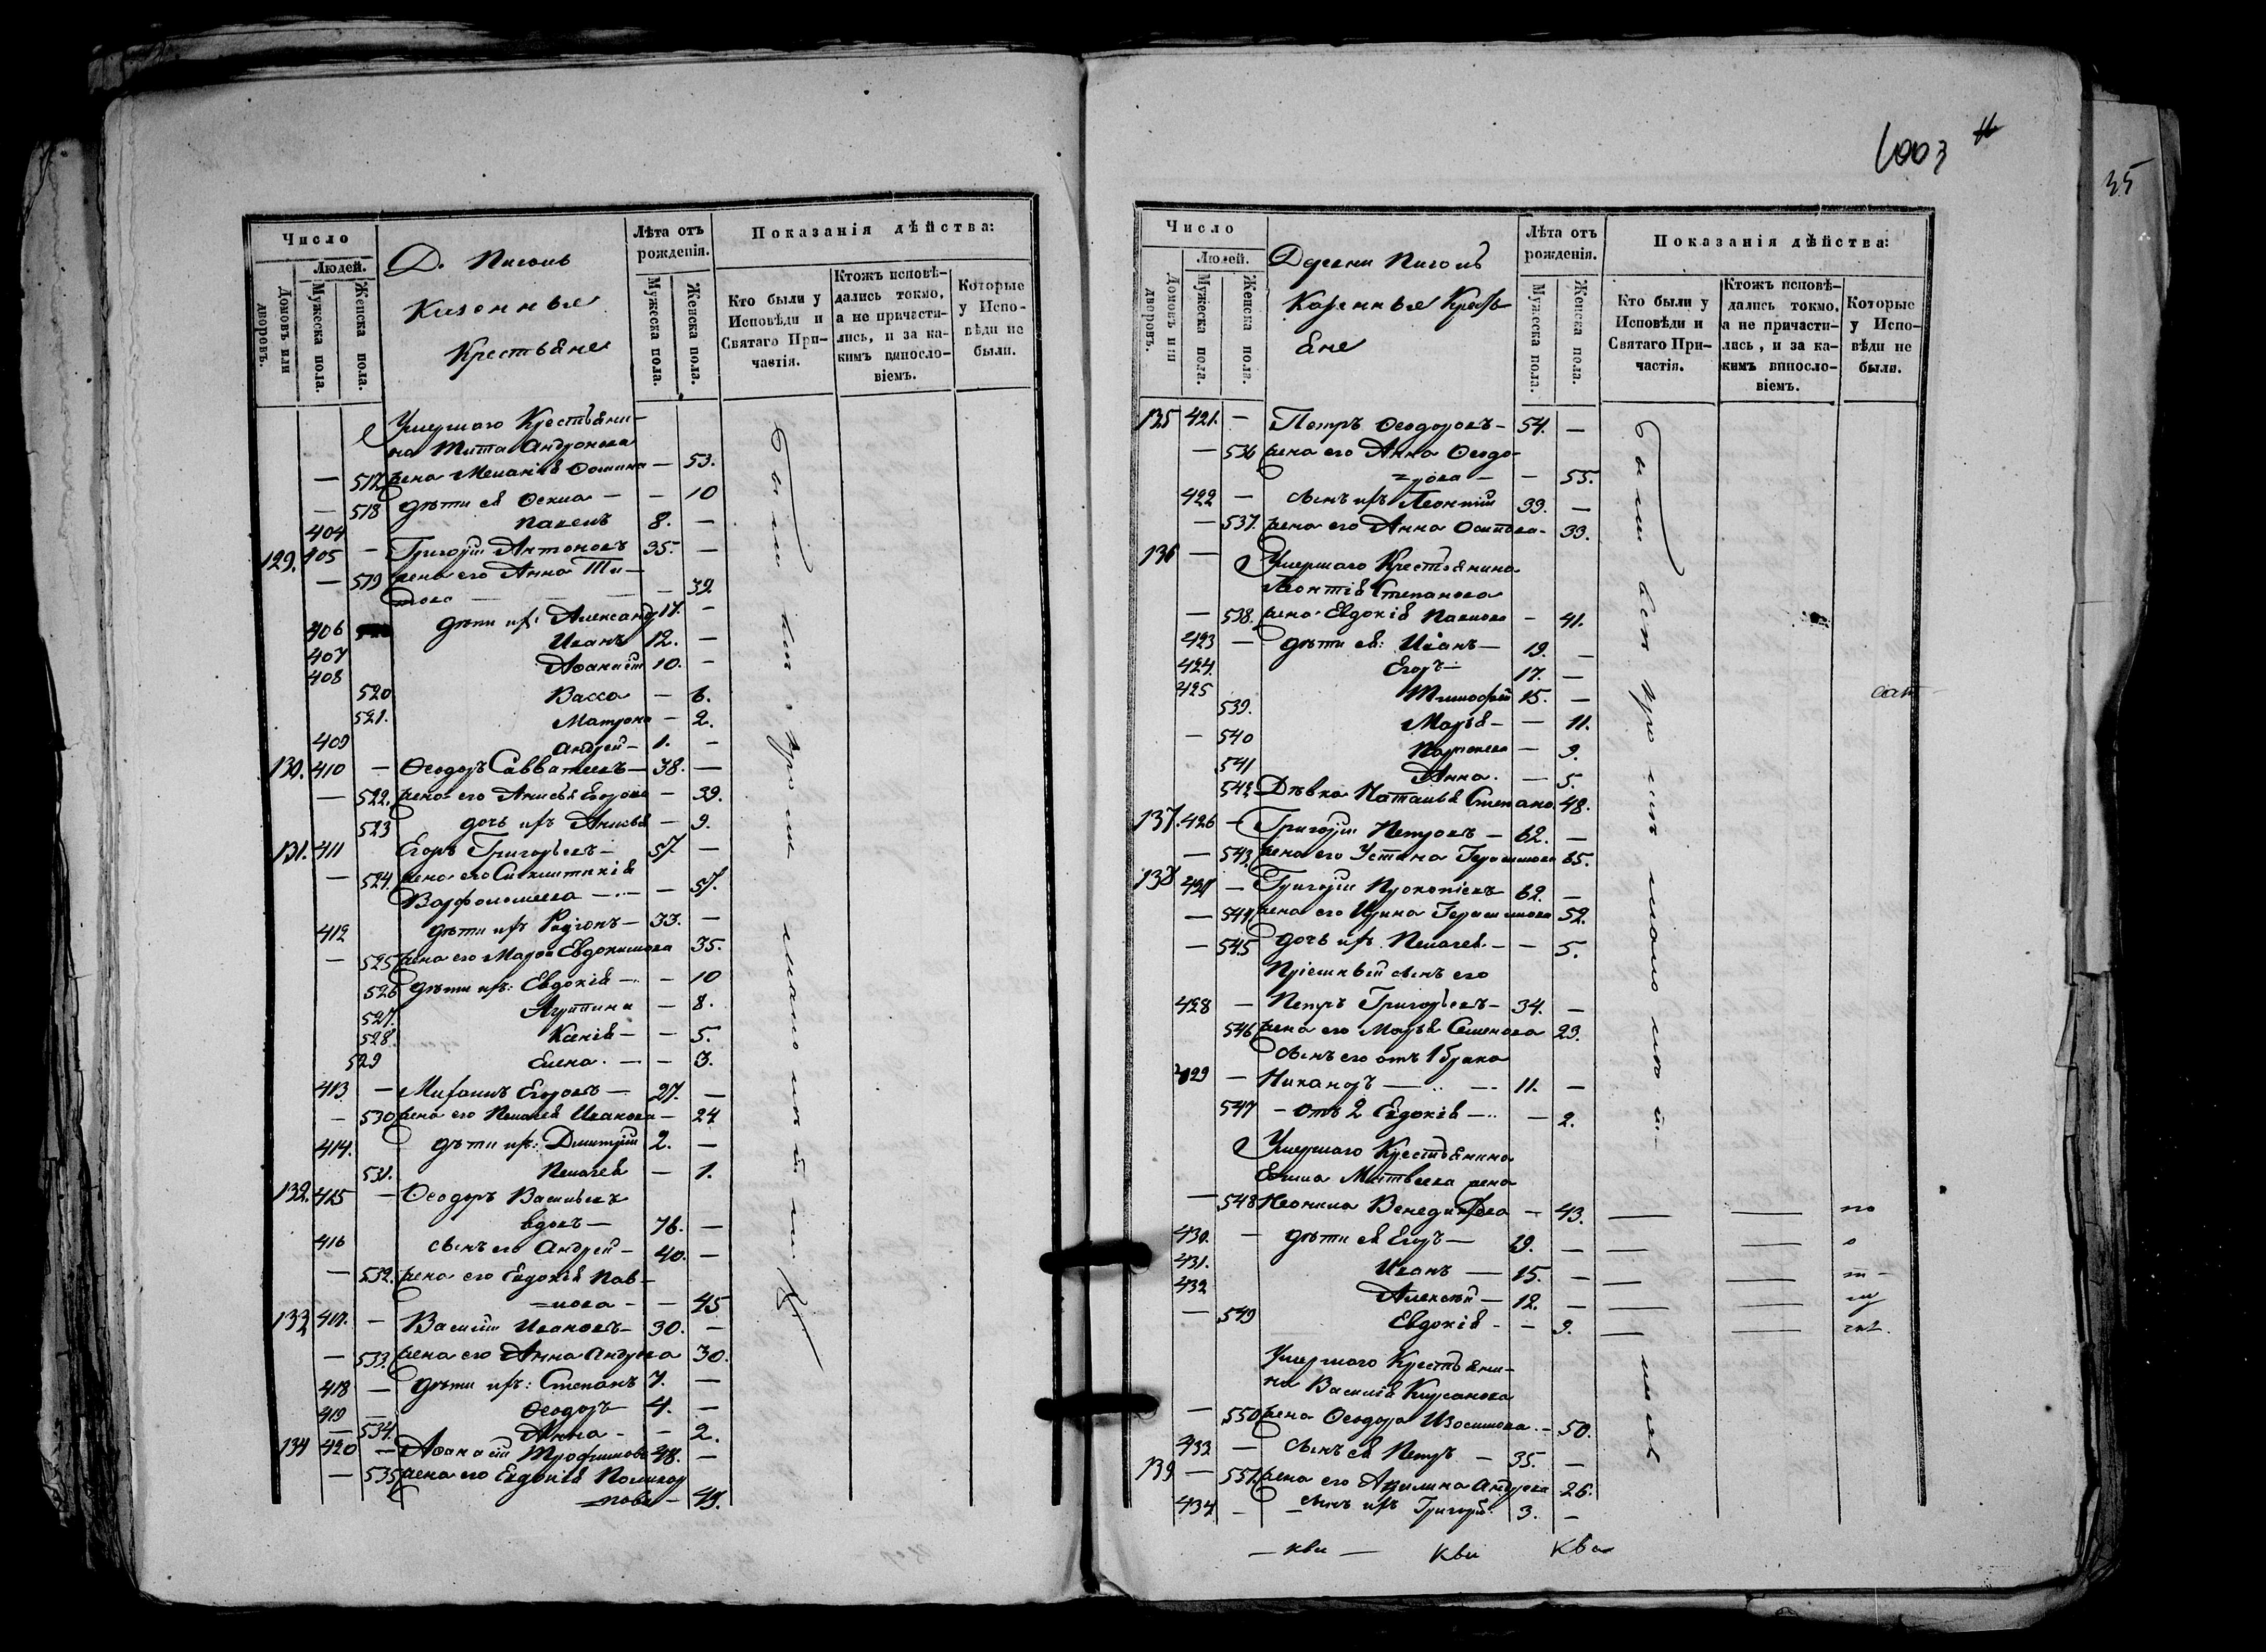 1003
35
Число
Людей.
Домовъ или дворовъ.
Мужеска пола.
Женска пола.
Д.
Казенные
Крестьяне
Лѣта отъ рожденія.
Мужеска пола.
Женска пола.
Показанія дѣйства:
Кто были у Исповѣди и Святаго Причастія.
Ктожъ исповѣдались токмо, а не причастились, и за какимъ винословіемъ.
Которые у Исповѣди не были.
Умершаго Крестьяни-
на Тита Андронова
— 517 жена Меланія — 53.
— 518 дѣти ея — — 10
404 Павелъ 8. —
129. 405 — Григорій Антоновъ 35. —
— 519 жена его Анна Ти-
това — 39
406 дѣти ихъ: Александръ 17. —
407 Иванъ 12. —
408 Аѳанасій 10. —
520 Васса — 6.
521. Матрона — 2.
409 Андрей — 1. —
130. 410 — Ѳеодоръ Савватеевъ — 38. —
— 522. жена его Анисья Егорова — 39.
523 дочь ихъ Анисья — 9.
131. 411 Егоръ Григорьевъ — 57 —
— 524. жена его Синклитикія
Варфоломеева — — 57.
412 дѣти ихъ Родіонъ — 33. —
— 525 жена его Марѳа Евдокимова 35.
526 дѣти ихъ: Евдокія — — 10
527. Агрипина — 8.
528. Ксенія — — 5.
529 Елена — — 3.
413 — Михаилъ Егоровъ — 27. —
— 530 жена его Пелагея Иванова — 24
414. дѣти ихъ: Дмитрій 2. —
531. Пелагея — 1.
132. 415 — Ѳеодоръ Васильевъ
вдовъ — 76. —
416 сынъ его Андрей — 40. —
— 532. жена его Евдокія Пав-
=лова — — 45
133 417. — Василій Ивановъ — 30. —
— 533. жена его Анна Андреева 30.
418 — дѣти ихъ: Степанъ 7. —
419 — Ѳеодоръ 4. —
— 534. Анна — — 2.
134 420 — Аѳанасій Трофимовъ 48. —
— 535 жена его Евдокія Поликар
пова — 49.
были
Число
Людей.
Домовъ или дворовъ.
Мужеска пола.
Женска пола.
Деревни
Казенные Кресть-
яне
Лѣта отъ рожденія.
Мужеска пола.
Женска пола.
Показанія дѣйства:
Кто были у Исповѣди и Святаго Причастія.
Ктожъ исповѣдались токмо, а не причастились, и за какимъ винословіемъ.
Которые у Исповѣди не были.
135 421. — Петръ Ѳеодоровъ — 54. —
— 536 жена его Анна Ѳеодо-
=рова — — 55.
422 — сынъ ихъ Леонтій 33. —
— 537. жена его Анна Осипова — 33.
136 — Умершаго Крестьянина
Леонтія Степанова
— 538. жена Евдокія Павлова — 41.
423 — дѣти ея: Иванъ — 19. —
424. Егоръ — 17. —
425 Тимофей 15. —
539. Марья — — 11.
— 540 9.
541 Анна. — 5.
542 Дѣвка Наталья Степано. 48.
137. 426 — Григорій Петровъ — 62. —
— 543. жена его Устина Герасимова 65.
138 427 — Григорій Прокопіевъ 62. —
— 544 жена его Ирина Герасимова 52.
— 545 дочь ихъ Пелагея — — 5.
Пріемный сынъ его
428 — Петръ Григорьевъ — 34. —
546 жена его Марья Семенова 23.
сынъ его отъ 1 брака
429 — Никаноръ — 11. —
547 — отъ 2 Евдокія — — 2.
Умершаго Крестьянина
Матвеева жена
— 548 Неонила Венедиктова — 43. — — по
430. — дѣти ея Егоръ — 19. — — —
431. Иванъ — 15. — — —
432 Алексѣй — 12. — — —
— 549 Евдокія — — 9. — —
Умершаго Крестьяни-
на Василія Кирсанова
— 550 жена Ѳеодора Изосимова — 50.
433 — сынъ ея Петръ — 35. —
139 — 551. жена его Акилина Андреева 26.
434 — — сынъ ихъ Григорій 3. —
были